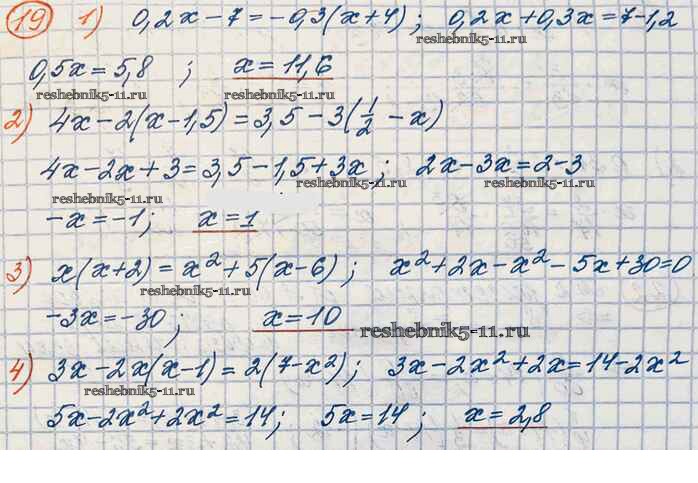 19 1) 0,2x-7=-0,3(x+4); 0,2x+0,3x=7-1,2
reshebnik5-11.ru
0,5x=5,8 ; x=11,6
reshebnik5-11.ru reshebnik5-11.ru
2) 4x-2(x-1,5)=3,5-3(1/2-x)
4x-2x+3=3,5-1,5+3x; 2x-3x=2-3
reshebnik5-11.ru reshebnik5-11.ru reshebnik5-11.ru
-x=-1; x=1
3) x(x+2)=x²+5(x-6); x²+2x-x²-5x+30=0
reshebnik5-11.ru
-3x=-30; x=10
reshebnik5-11.ru
4) 3x-2x(x-1)=2(7-x²); 3x-2x²+2x=14-2x²
reshebnik5-11.ru
5x-2x²+2x²=14; 5x=14; x=2,8